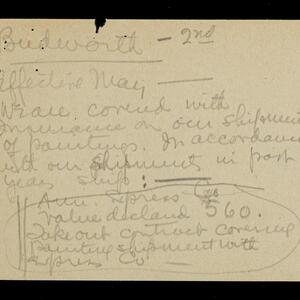 Budworth - 2nd
Effective May
We are covered with
insurance on our shipment
of paintings. In accordance
with our shipments in past
years ship:
Am. Express Co
Value declared $560.
Take out contract covering
painting shipment with
Express Co